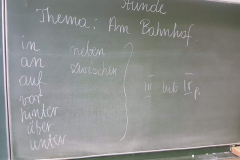 Stunde
Thema: Am Bahnhof
in neben
an zwischen
auf
vor
hinter
über
unter
III
IV p.